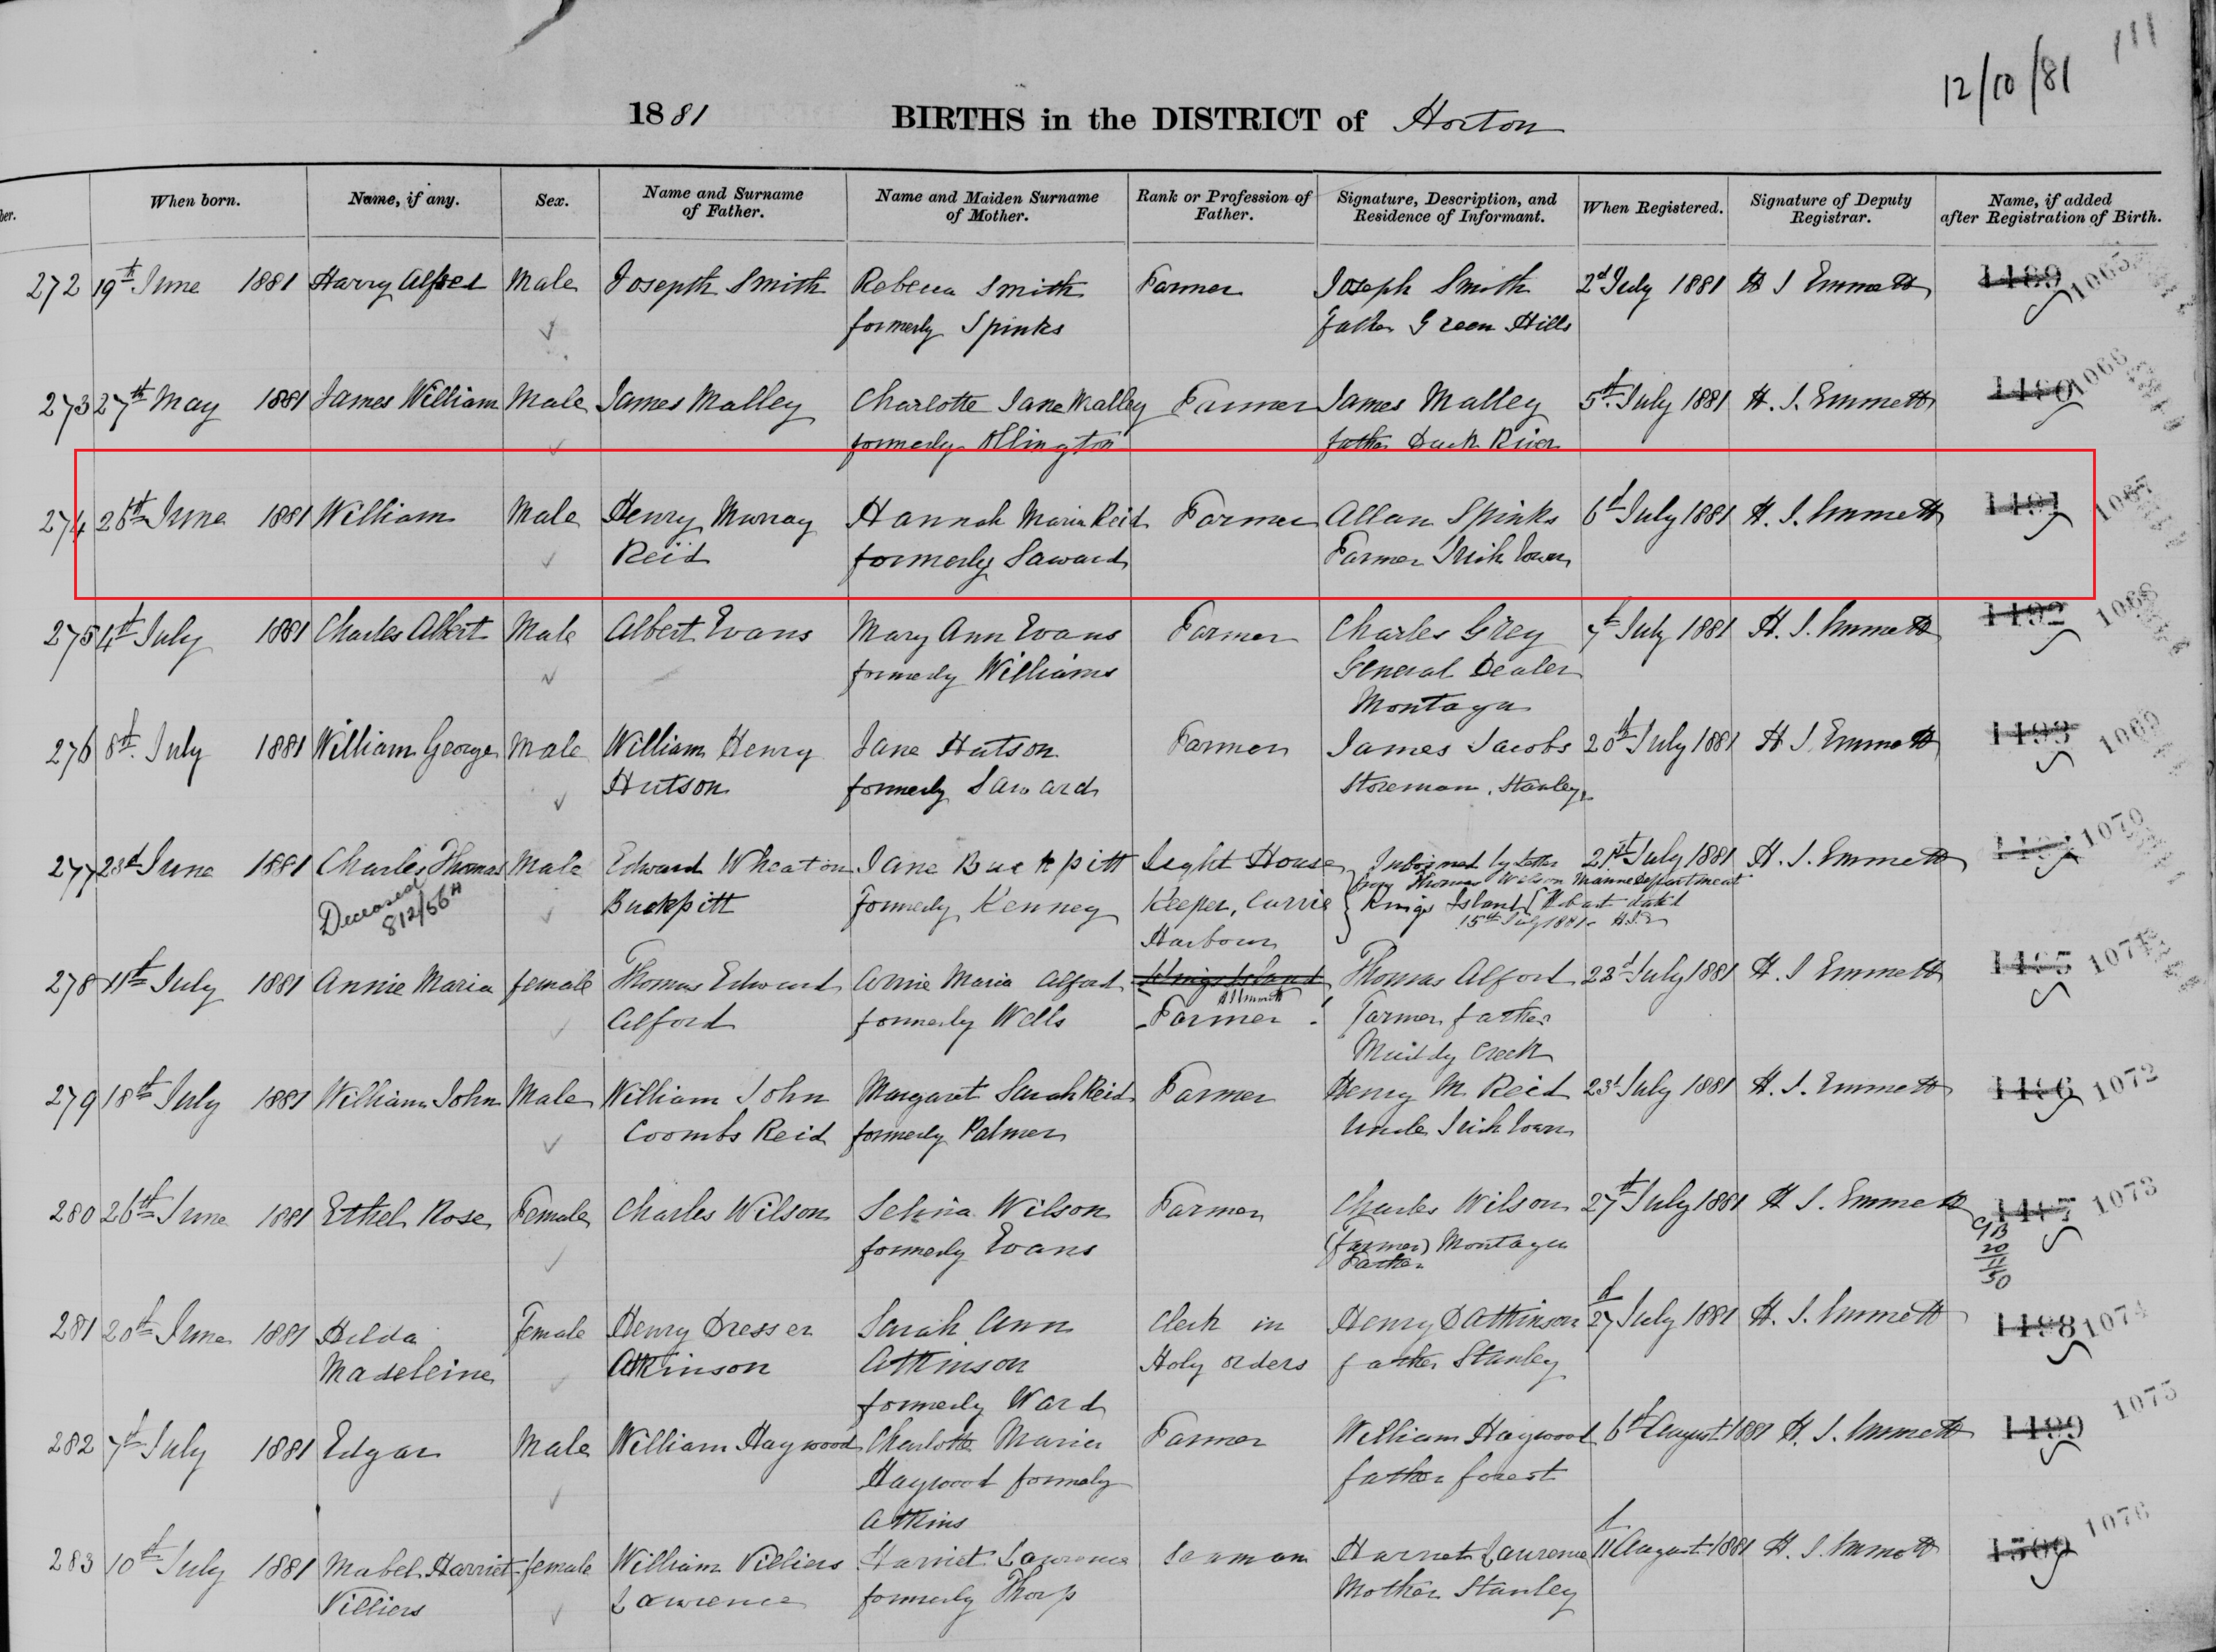 111
12/10/81
1881 BIRTHS in the DISTRICT of Horton
ber. When born. Name, if any. Sex. Name and Surname of Father. Name and Maiden Surname of Mother. Rank or Profession of Father. Signature, Description, and Residence of Informant. When Registered. Signature of Deputy Registrar. Name, if added after Registration of Birth.
272 19th June 1881 Harry Alfred Male Joseph Smith Rebecca Smith Farmer Joseph Smith 2d July 1881 H S Emmett 1489 1065
formerly Spinks father Green Hills
273 27th May 1881 James William Male James Malley Charlotte Jane Malley Farmer James Malley 5th July 1881 H. S. Emmett 1490 1066
formerly Ollington father Duck River
274 26th June 1881 William Male Henry Murray Hannah Maria Reid Farmer Allan Spinks 6th July 1881 H. S. Emmett 1491 1067
Reid formerly Saward Farmer Irish Town
275 4th July 1881 Charles Albert Male Albert Evans Mary Ann Evans Farmer Charles Grey 7th July 1881 H. S. Emmett 1492 1068
formerly Williams General Dealer
Montagu
276 8th July 1881 William George Male William Henry Jane Hutson Farmer James Jacobs 20th July 1881 H S Emmett 1493 1069
Hutson formerly Saward Storeman, Stanley
277 23d June 1881 Charles Thomas Male Edward Wheaton Jane Buckpitt Light House Informed by letter 21st July 1881 H. S. Emmett 1494 1070
from Thomas Wilson Marine Department
Deceased 812/56H Buckpitt formerly Kenney Keeper, Currie Kings Island Hobart dated
15th July 1881 H.S.E
Harbour
278 11th July 1881 Annie Maria female Thomas Edward Annie Maria Alford Kings Island Thomas Alford 22d July 1881 H. S Emmett 1495 1071
HSEmmett
Alford formerly Wells Farmer Farmer, father
Muddy Creek
279 18th July 1881 William John Male William John Margaret Sarah Reid Farmer Henry M Reid 23d July 1881 H. S. Emmett 1496 1072
Coombs Reid formerly Palmer Uncle Irish Town
280 26th June 1881 Ethel Rose Female Charles Wilson Selina Wilson Farmer Charles Wilson 27th July 1881 H S. Emmett 1497 1073
formerly Evans (farmer) Montagu
Father
20
11
50
281 20th June 1881 Hilda Female Henry Dresser Sarah Ann Clerk in Henry D Atkinson 27th July 1881 H. S. Emmett 1498 1074
Madeleine Atkinson Atkinson Holy orders father Stanley
formerly Ward
282 7th July 1881 Edgar Male William Haywood Charlotte Maria Farmer William Haywood 6th August 1881 H. S. Emmett 1499 1075
Haywood formerly father forest
Atkins
283 10th July 1881 Mabel Harriet female William Villiers Harriet Lawrence Seaman Harriet Lawrence 11th August 1881 H. S. Emmett 1500 1076
Villiers Lawrence formerly Thorp Mother Stanley